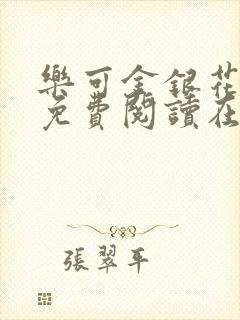 樂可金銀花
免費閱讀在
張翠平